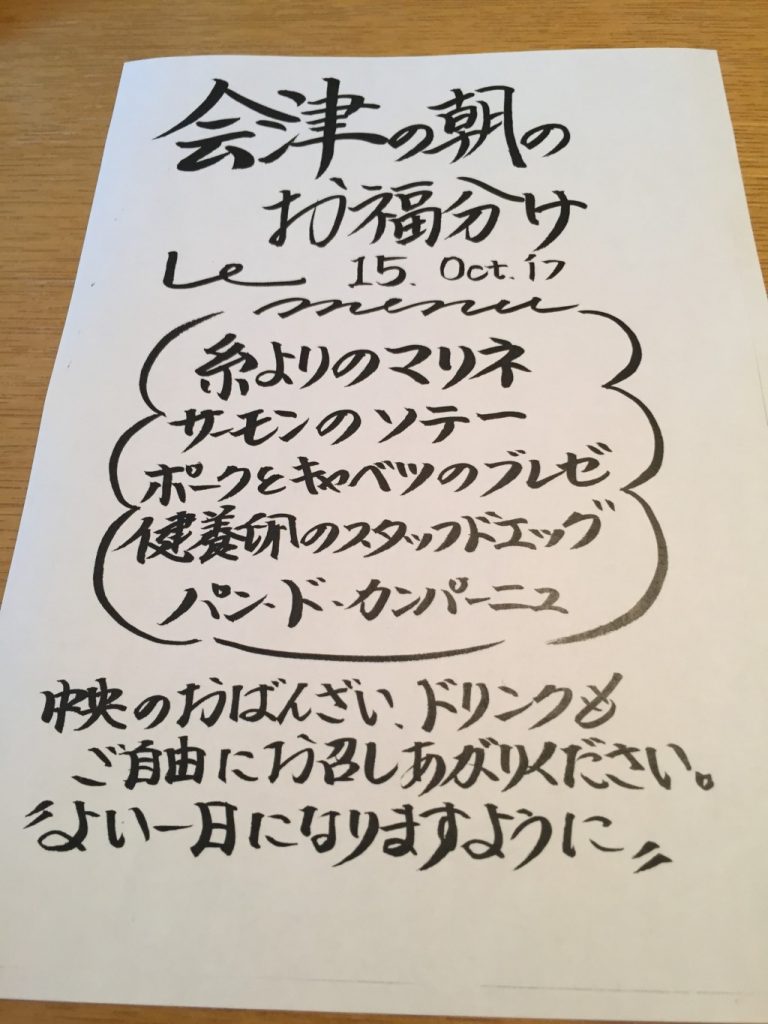 会津の朝の
お福分け
Le 15. Oct. 17
menu
糸よりのマリネ
サーモンのソテー
ポークとキャベツのブレゼ
健養卵のスタッフドエッグ
パン・ド・カンパーニュ
中央のおばんざい、ドリンクも
ご自由にお召しあがりください。
〝よい一日になりますように〟